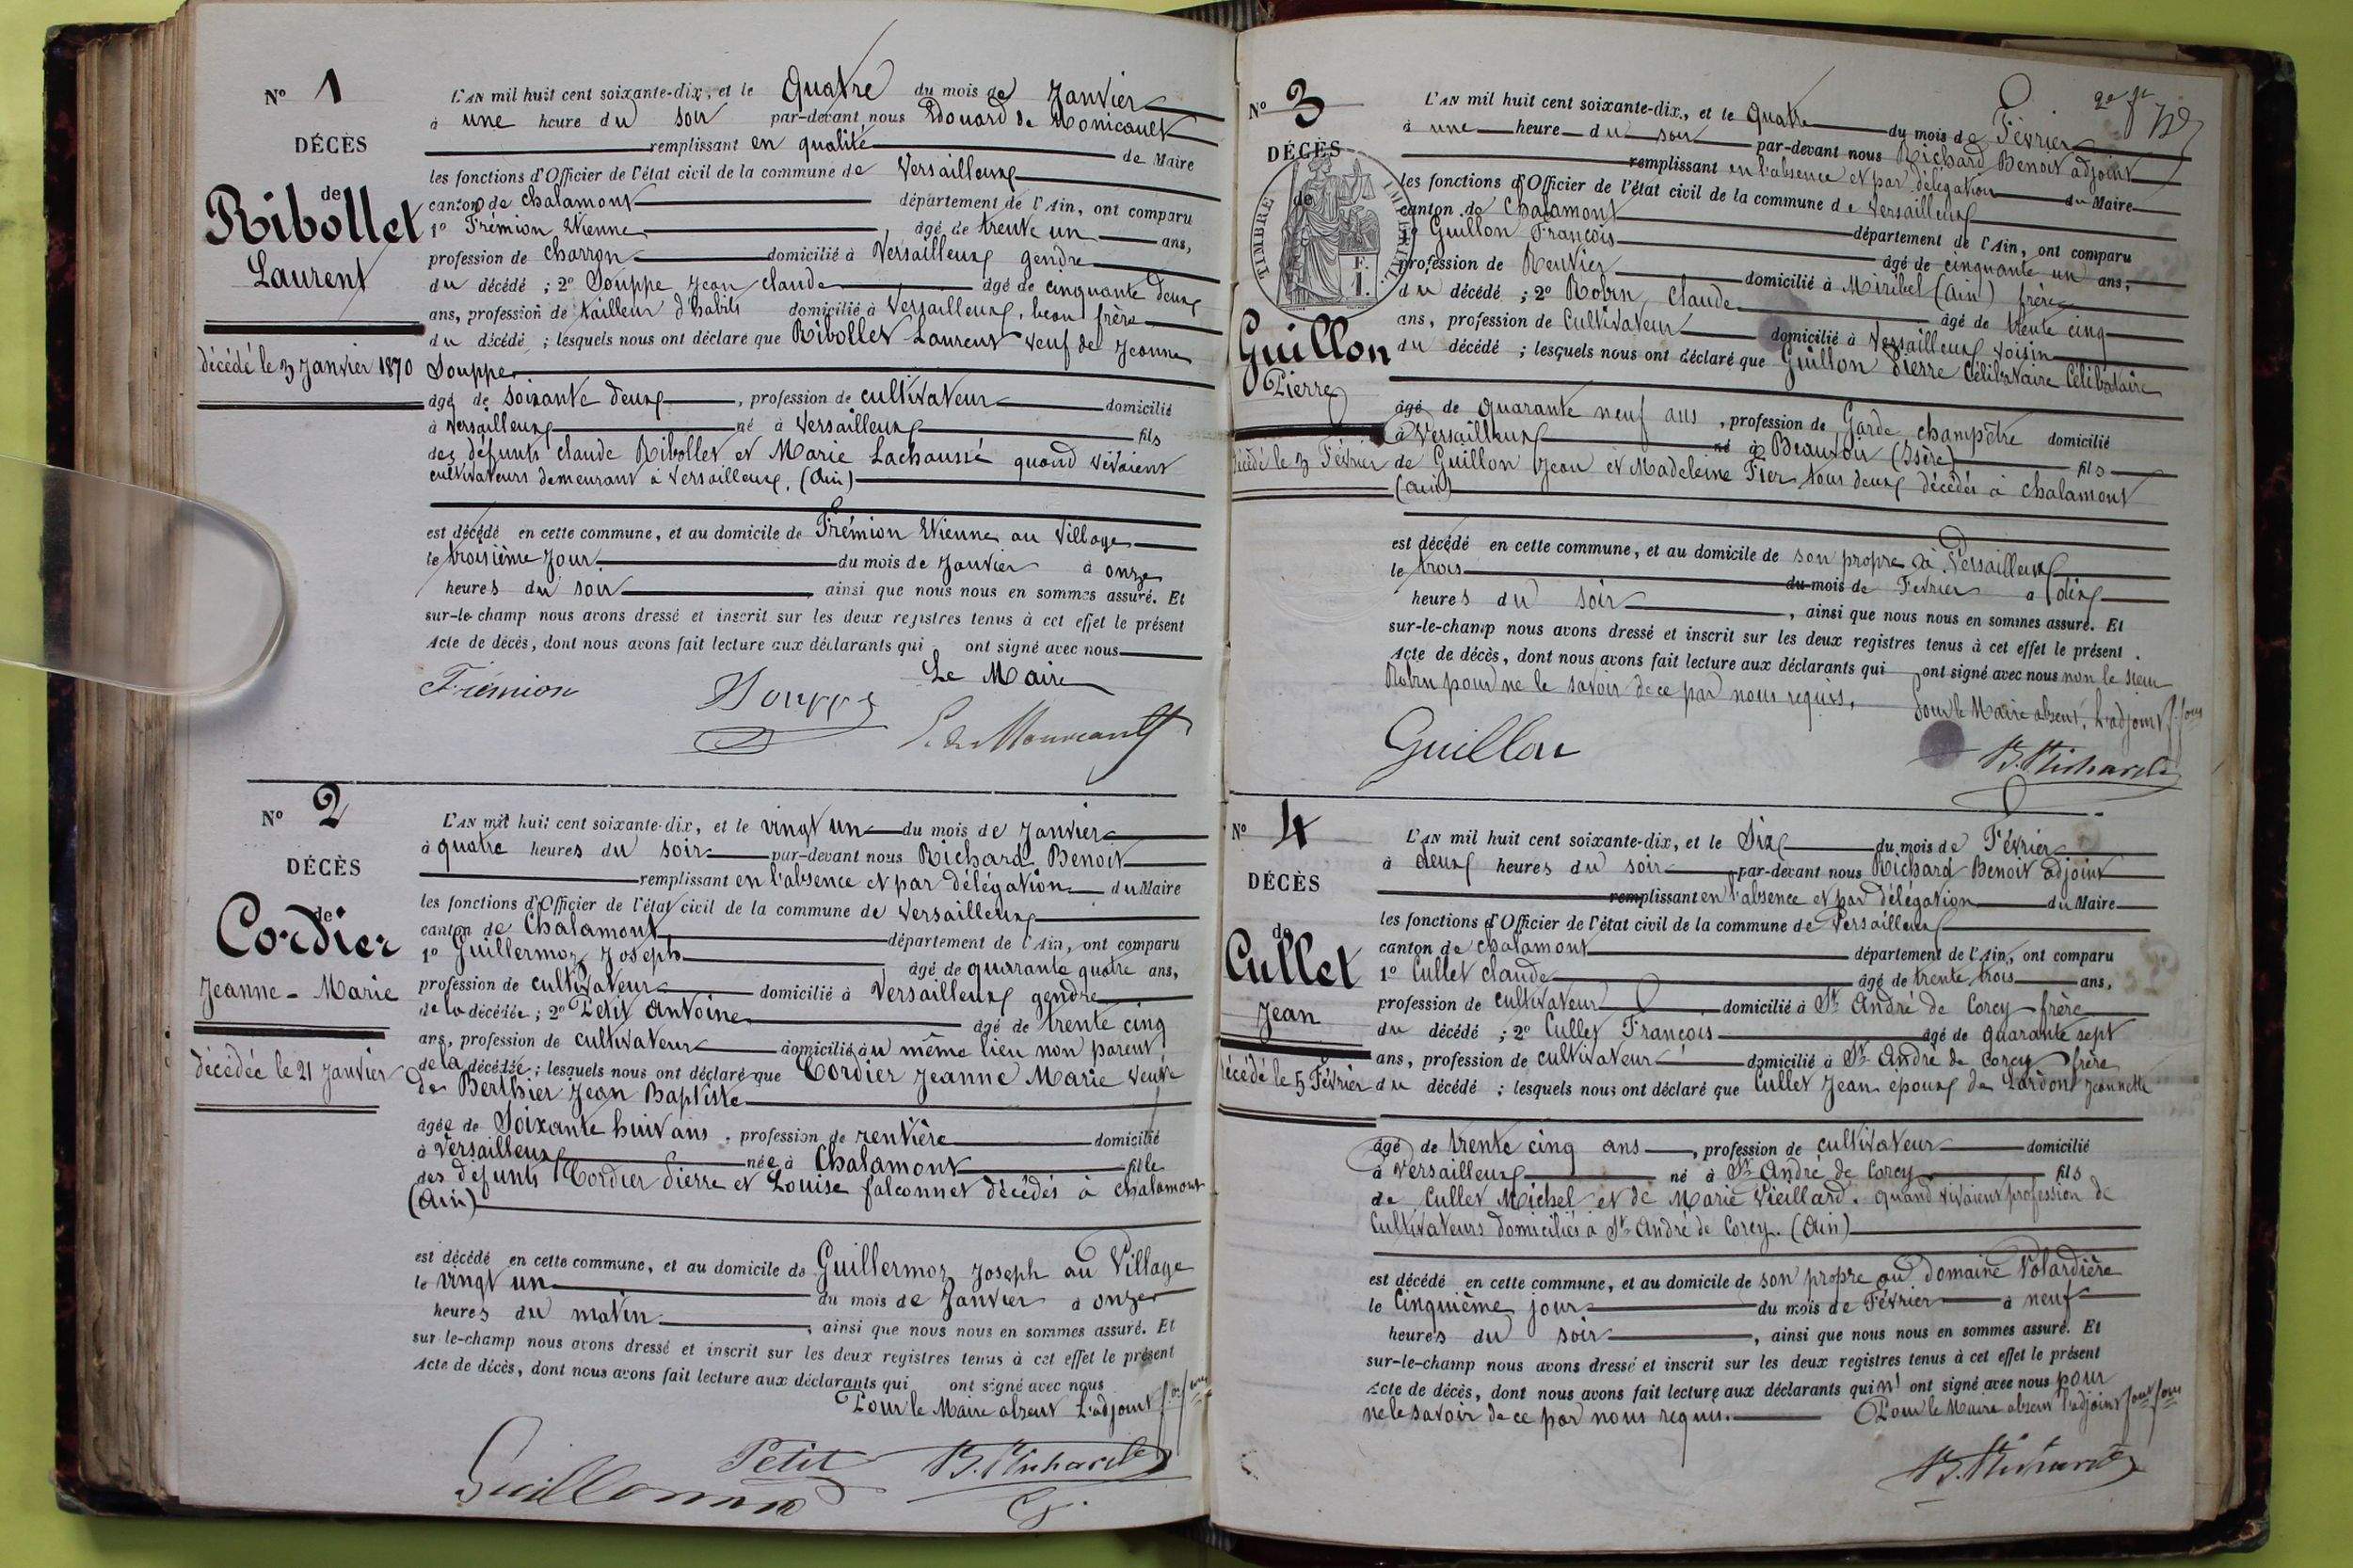 N° 1
DÉCÈS
de
Ribollet
Laurent
décédé le 3 Janvier 1870
L'AN mil huit cent soixante-dix, et le Quatre du mois de Janvier
à une heure du soir par-devant nous Edouard de Monicault
remplissant en qualité de Maire
les fonctions d'Officier de l'état civil de la commune de Versailleux
canton de Chalamont département de l'Ain, ont comparu
1° Frémion Etienne, âgé de trente un ans,
profession de charron domicilié à Versailleux gendre
du décédé ; 2° Souppe Jean claude âgé de cinquante deux
ans, profession de tailleur d'habits domicilié à Versailleux, beau frère
du décédé ; lesquels nous ont déclaré que Ribollet Laurent veuf de Jeanne
Souppe
âgé de soixante deux, profession de cultivateur domicilié
à Versailleux né à Versailleux fils
des défunts claude Ribollet et Marie Lachaussé quand vivaient
cultivateurs demeurant à Versailleux. (Ain)
est décédé en cette commune, et au domicile de Frémion Etienne au Village
le troisième jour du mois de Janvier à onze
heures du soir, ainsi que nous nous en sommes assuré. Et
sur-le-champ nous avons dressé et inscrit sur les deux registres tenus à cet effet le présent
Acte de décès, dont nous avons fait lecture aux déclarants qui ont signé avec nous
Le Maire
Frémion Souppe E. de Monicault
N° 2
DÉCÈS
de
Cordier
Jeanne - Marie
décédée le 21 Janvier
L'AN mil huit cent soixante-dix, et le vingt un du mois de Janvier
à quatre heures du soir par-devant nous Richard Benoit
remplissant en l'absence et par délégation du Maire
les fonctions d'Officier de l'état civil de la commune de Versailleux
canton de Chalamont département de l'Ain, ont comparu
1° Guillermoz Joseph, âgé de quarante quatre ans,
profession de cultivateur domicilié à Versailleux gendre
de la décédée ; 2° Petit Antoine âgé de trente cinq
ans, profession de cultivateur domicilié au même lieu non parent
de la décédée ; lesquels nous ont déclaré que Cordier Jeanne Marie veuve
de Berthier Jean Baptiste
âgée de Soixante huit ans, profession de rentière domicilié
à Versailleux née à Chalamont fille
des défunts Cordier Pierre et Louise falconnet décédés à chalamont
(Ain)
est décédé en cette commune, et au domicile de Guillermoz Joseph au Village
le vingt un du mois de Janvier à onze
heures du matin, ainsi que nous nous en sommes assuré. Et
sur le-champ nous avons dressé et inscrit sur les deux registres tenus à cet effet le présent
Acte de décès, dont nous avons fait lecture aux déclarants qui ont signé avec nous
Pour le Maire absent L'adjoint
Petit B. Richard
Guillermoz
2e
N° 3
DÉCÈS
de
TIMBRE IMPÉRIAL
F.
1.
Guillon
Pierre
décédé le 3 Février
L'AN mil huit cent soixante-dix, et le Quatre du mois de Février
à une heure du soir par-devant nous Richard Benoit adjoint
remplissant en l'absence et par délégation du Maire
les fonctions d'Officier de l'état civil de la commune de Versailleux
canton de Chalamont département de l'Ain, ont comparu
1° Guillon François âgé de cinquante un ans,
profession de Rentier domicilié à Miribel (Ain) frère
du décédé ; 2° Robin claude âgé de trente cinq
ans, profession de Cultivateur domicilié à Versailleux voisin
du décédé ; lesquels nous ont déclaré que Guillon Pierre Célibataire Célibataire
âgé de quarante neuf ans, profession de Garde champêtre domicilié
à Versailleux né à Beauvoir (Isère) fils
de Guillon Jean et Madeleine Fier tous deux décédés à chalamont
(Ain)
est décédé en cette commune, et au domicile de son propre à Versailleux
le trois du mois de Fevrier à dix
heures du soir, ainsi que nous nous en sommes assuré. Et
sur-le-champ nous avons dressé et inscrit sur les deux registres tenus à cet effet le présent
Acte de décès, dont nous avons fait lecture aux déclarants qui ont signé avec nous non le sieur
Robin pour ne le savoir de ce par nous requis.
Pour le Maire absent, L'adjoint
Guillon B. Richard
N° 4
DÉCÈS
de
Cullet
Jean
décédé le 5 Février
L'AN mil huit cent soixante-dix, et le Six du mois de Février
à deux heures du soir par-devant nous Richard Benoit adjoint
remplissant en l'absence et par délégation du Maire
les fonctions d'Officier de l'état civil de la commune de Versailleux
canton de chalamont département de l'Ain, ont comparu
1° Cullet claude âgé de trente trois ans,
profession de cultivateur domicilié à St André de Corcy frère
du décédé ; 2° Cullet François âgé de quarante sept
ans, profession de cultivateur domicilié à St André de Corcy frère
du décédé ; lesquels nous ont déclaré que Cullet Jean époux de Lardon Jeannette
âgé de trente cinq ans, profession de cultivateur domicilié
à Versailleux né à St André de Corcy fils
de Cullet Michel et de Marie Vieillard. quand vivaient profession de
Cultivateurs domiciliés à St André de Corcy. (Ain)
est décédé en cette commune, et au domicile de son propre au domaine Volardière
le Cinquième jour du mois de Février à neuf
heures du soir, ainsi que nous nous en sommes assuré. Et
sur-le-champ nous avons dressé et inscrit sur les deux registres tenus à cet effet le présent
Acte de décès, dont nous avons fait lecture aux déclarants qui n' ont signé avec nous pour
ne le savoir de ce par nous requis. Pour le Maire absent l'adjoint
B. Richard